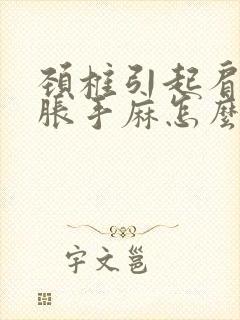 頚柱引起肩
脹手麻怎麼
宇文邕